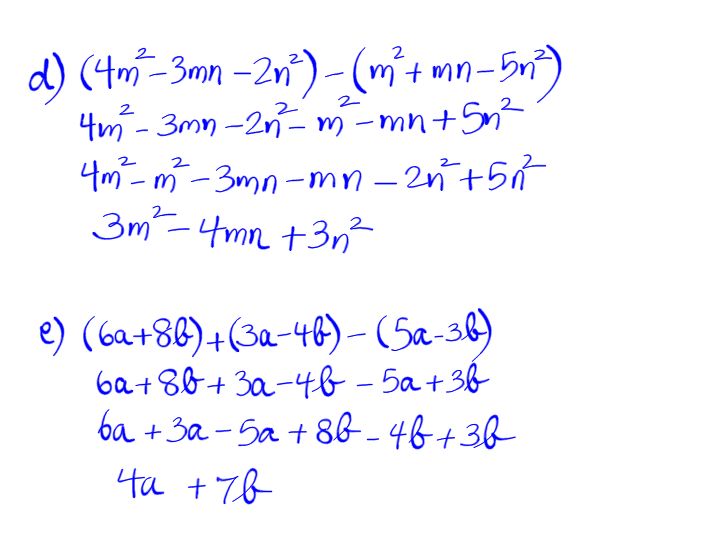 d) (4m²-3mn-2n²)-(m²+mn-5n²)
4m²-3mn-2n²-m²-mn+5n²
4m²-m²-3mn-mn-2n²+5n²
3m²-4mn+3n²
e) (6a+8b)+(3a-4b)-(5a-3b)
6a+8b+3a-4b-5a+3b
6a+3a-5a+8b-4b+3b
4a+7b